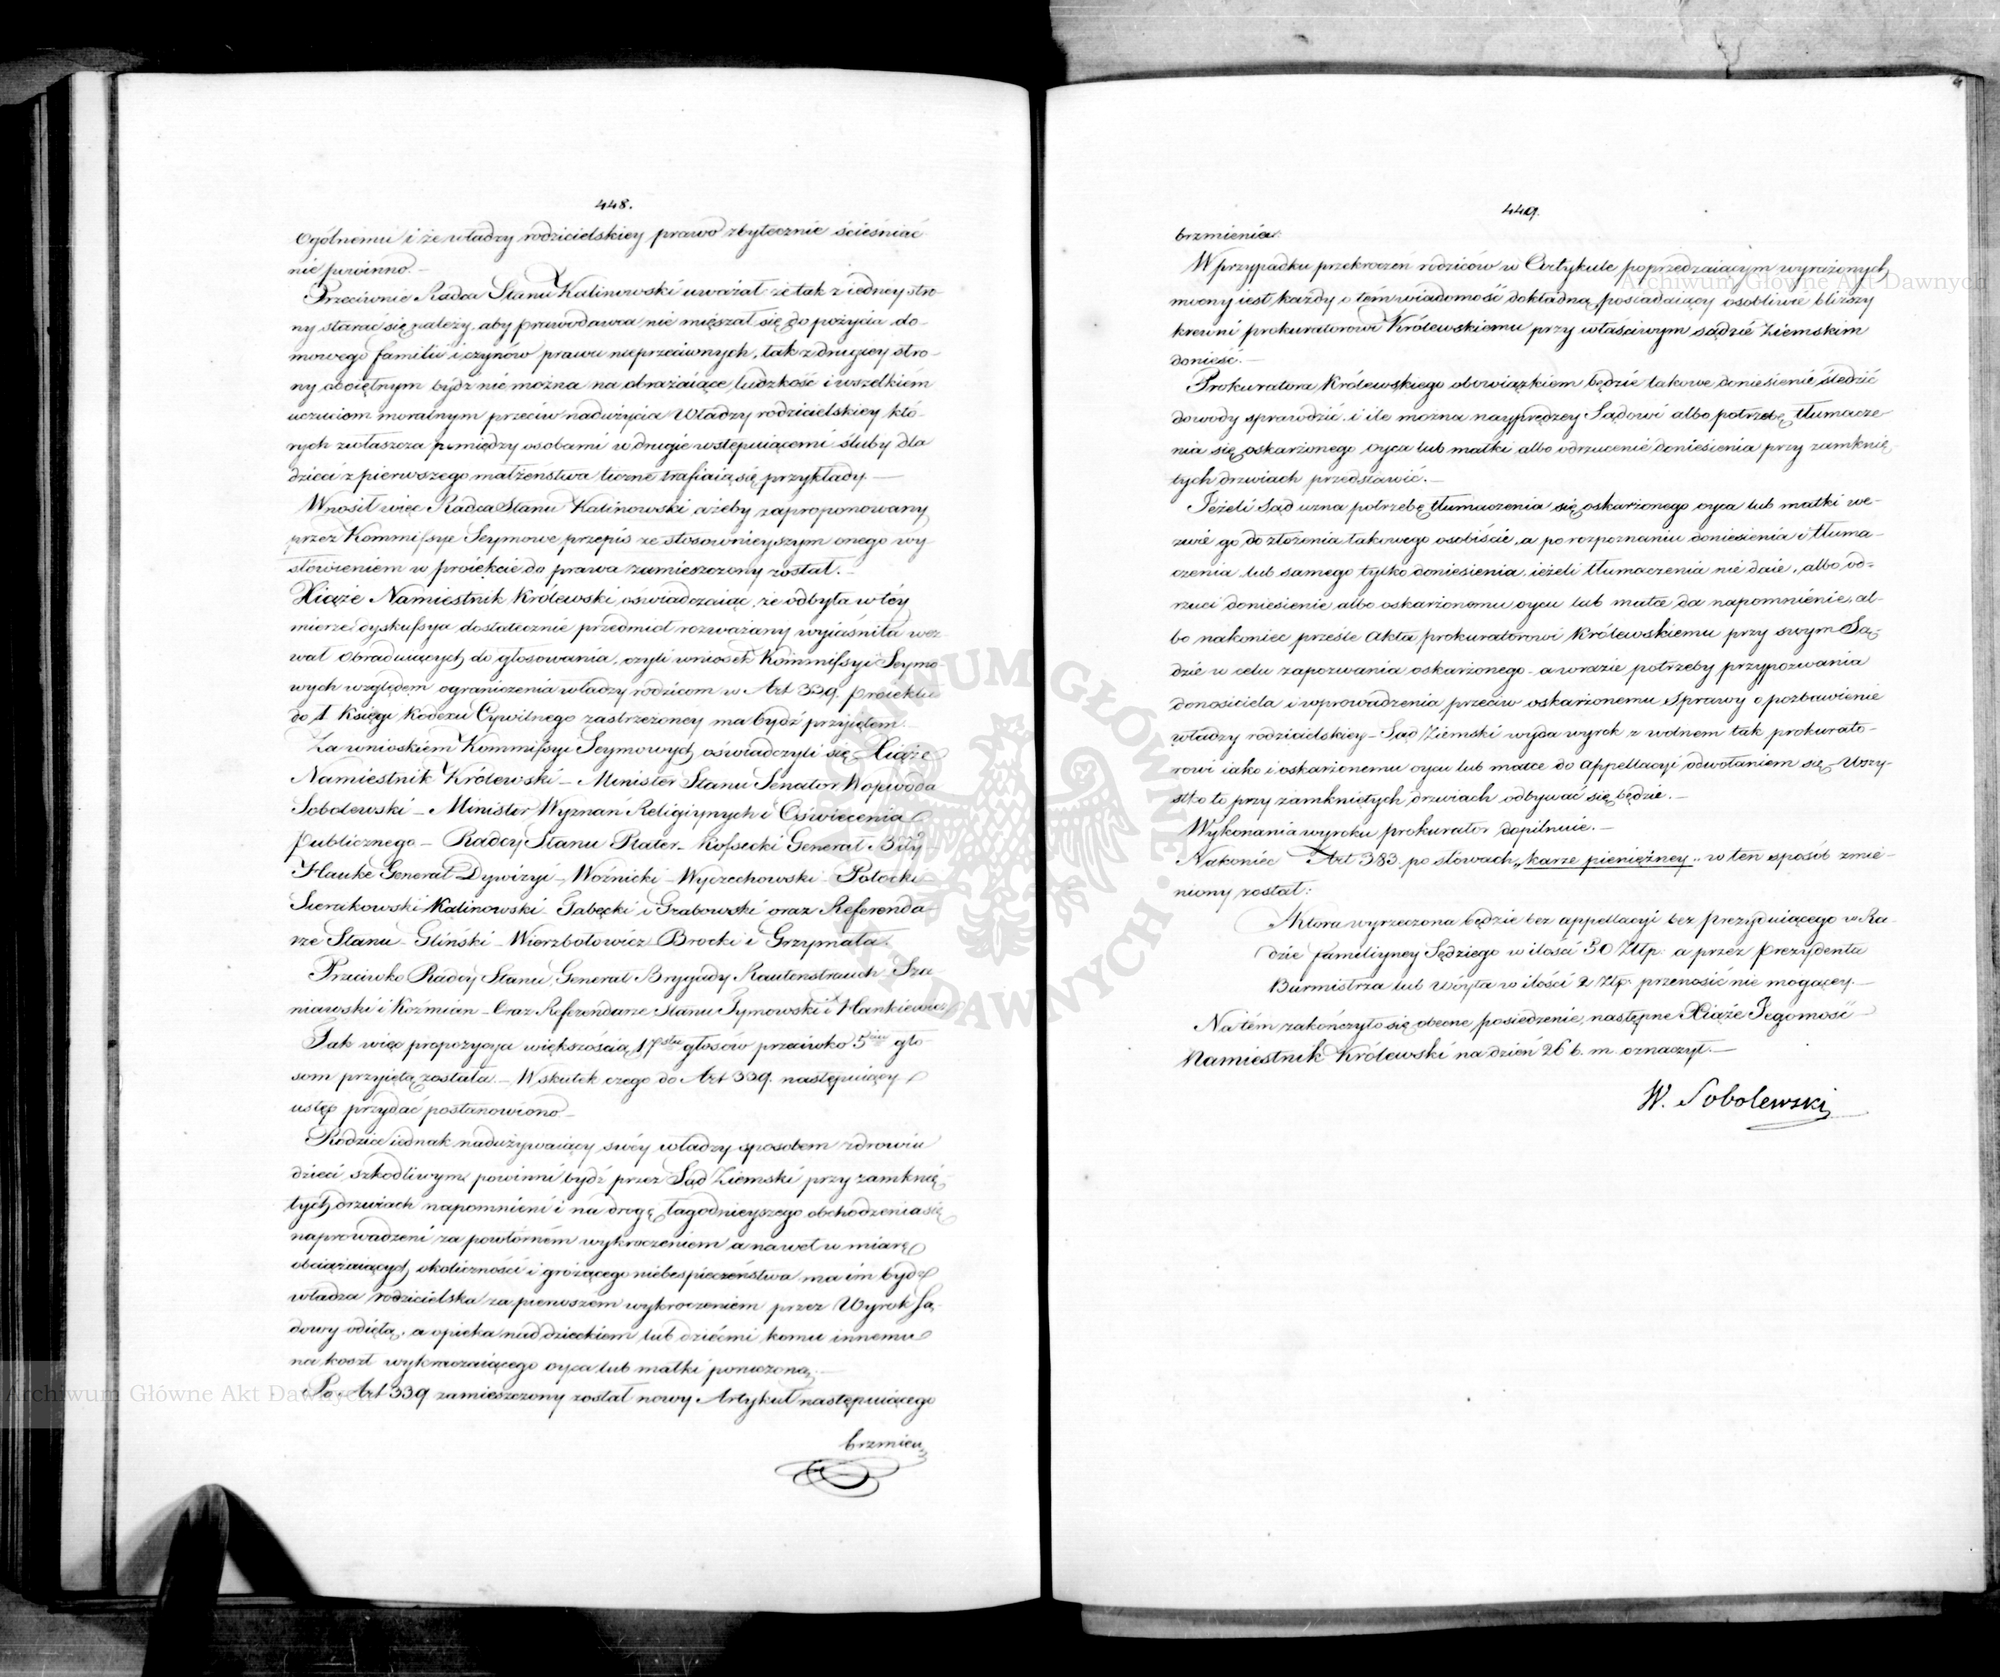 448.
Ogólnemu i że władzy rodzicielskiey prawo zbytecznie ścieśniać
nie powinno.—
Przeciwnie Radca Stanu Kalinowski uważał że tak z iedney stro-
ny starać się należy, aby prawodawca nie mięszał się do pożycia do-
mowego familii i czynów prawu nieprzeciwnych, tak z drugiey stro-
ny oboiętnym bydź nie można na obrażaiące ludzkość i wszelkiem
uczuciom moralnym przeciw nadużycia Władzy rodzicielskiey któ-
rych zwłaszcza pomiędzy osobami w drugie wstępuiącemi śluby dla
dzieci z pierwszego małżeństwa liczne trafiaią się przykłady.—
Wnosił więc Radca Stanu Kalinowski ażeby zaproponowany
przez Kommissye Seymowe przepis ze stosownieyszym onego wy-
słowieniem w proiekcie do prawa zamieszczony został.—
Xiąże Namiestnik Królewski oświadczaiąc, że odbyta w téy
mierze dyskussya dostatecznie przedmiot rozważany wyiaśniła wez-
wał Obraduiących do głosowania, czyli wniosek Kommissyi Seymo-
wych względem ograniczenia władzy rodzicom w Art 339. proiektu
do 1 Księgi Kodexu Cywilnego zastrzeżonéy ma bydź przyiętem
Za wnioskiem Kommissyi Seymowych oświadczyli się Xiąże
Namiestnik Królewski — Minister Stanu Senator Woiewoda
Sobolewski — Minister Wyznań Religiynych i Oświecenia
Publicznego — Radcy Stanu Plater — Kossecki Generał Bdy —
Hauke Generał Dywizyi — Woźnicki — Wyczechowski — Potocki
Sierakowski Kalinowski — Tabęcki i Grabowski oraz Referenda-
rze Stanu — Gliński — Wierzbołowicz Brocki i Grzymała.
Przeciwko Radcy Stanu, Generał Brygady Rautenstrauch Sza-
niawski i Koźmian — Oraz Referendarze Stanu Tymowski i Hankiewicz
Tak więc propozycya większością 17stu głosów przeciwko 5ciu gło-
som przyiętą została — W skutek czego do Art 339. następuiący
ustęp przydać postanowiono —
Rodzice iednak nadużywaiący swéy władzy sposobem zdrowiu
dzieci szkodliwym powinni bydź przez Sąd Ziemski przy zamknię-
tych drzwiach napomnieni i na drogę łagodnieyszego obchodzenia się
naprowadzeni za powtórném wykroczeniem a nawet w miarę
obciążaiących okoliczności i grożącego niebespieczeństwa ma im bydź
władza rodzicielska za pierwszem wykroczeniem przez Wyrok Są-
dowy odięta, a opieka nad dzieckiem lub dziećmi komu innemu
na koszt wykraczaiącego oyca lub matki poruczoną.—
Po Art 339 zamieszczony został nowy Artykuł następuiącego
brzmien
449.
brzmienia:
W przypadku przekroczeń rodziców w Artykule poprzedzaiącym wyrażonych
mocny iest każdy o tém wiadomość dokładną posiadaiący osobliwie bliższy
krewni prokuratorowi Królewskiemu przy właściwym sądzie Ziemskim
donieść.—
Prokuratora Królewskiego obowiązkiem będzie takowe doniesienie śledzić
dowody sprawdzić i ile można nayprędzey Sądowi albo potrzebę tłumacze-
nia się oskarżonego oyca lub matki albo odrzucenie doniesienia przy zamknię-
tych drzwiach przedstawić.—
Jeżeli Sąd uzna potrzebę tłumaczenia się oskarżonego oyca lub matki we-
zwie go do złożenia takowego osobiście, a po rozpoznaniu doniesienia i tłuma-
czenia lub samego tylko doniesienia ieżeli tłumaczenia nie daie, albo od-
rzuci doniesienie albo oskarżonemu oycu lub matce da napomnienie, al-
bo nakoniec prześle akta prokuratorowi Królewskiemu przy swym Są-
dzie w celu zapozwania oskarżonego a w razie potrzeby przypozwania
donosiciela i wprowadzenia przeciw oskarżonemu Sprawy o pozbawienie
władzy rodzicielskiey — Sąd Ziemski wyda wyrok z wolnem tak prokurato-
rowi iako i oskarżonemu oycu lub matce do appellacyi odwołaniem się — Wszy-
stko to przy zamkniętych drzwiach odbywać się będzie.—
Wykonania wyroku prokurator dopilnuie.—
Nakoniec Art 383 po słowach „karze pieniężney" w ten sposób zmie-
niony został:
Która wyrzeczona będzie bez appellacyi bez prezyduiącego w Ra-
dzie familiyney Sędziego w ilości 30 Złp. a przez Prezydenta
Burmistrza lub Wóyta w ilości 2 Złp. przenosić nie mogącey.—
Na tém zakończyło się obecne posiedzenie, następne Xiąże Jegomość
Namiestnik Królewski na dzień 26 b. m. oznaczył.—
W. Sobolewski
Archiwum Główne Akt Dawnych
Archiwum Główne Akt Dawnych
ARCHIWUM GŁÓWNE AKT DAWNYCH